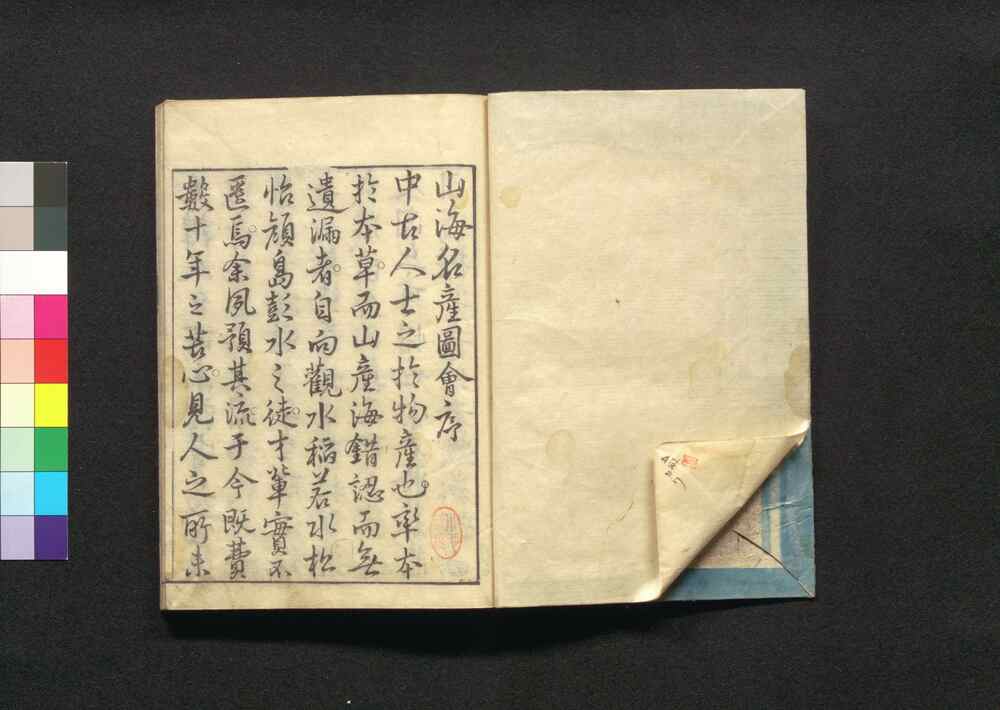 山海名産圖會序
中古人士之於物産也率本
於本草而山産海錯認而無
遺漏者自向觀水稲若水松
怡顔島彭水之徒才輩實不
匱焉余夙預其流于今既費
數十年之苦心見人之所未